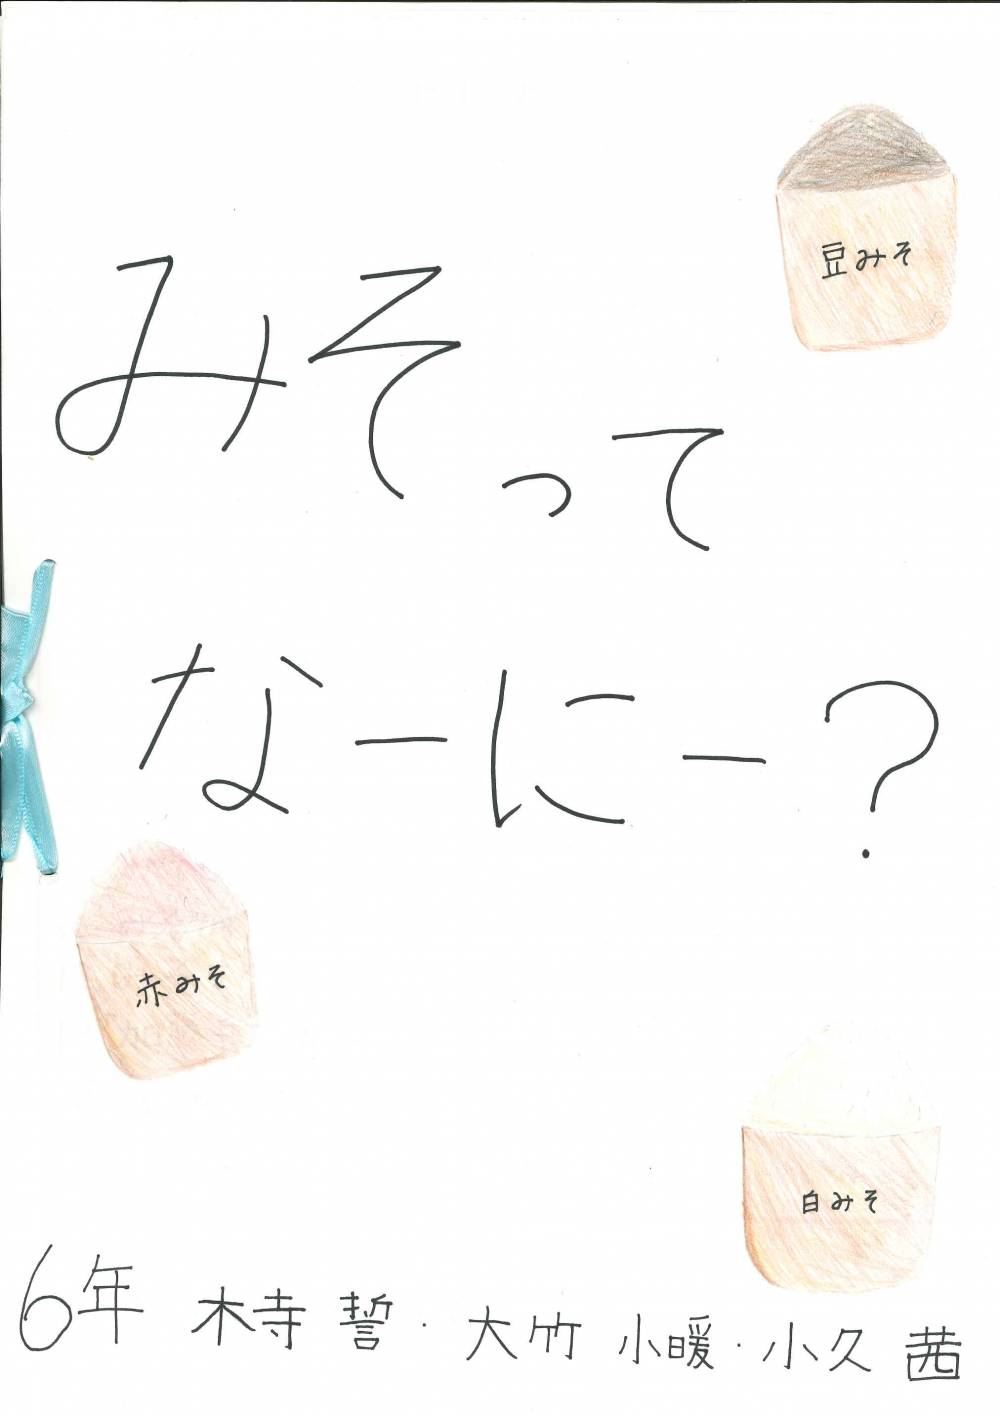 豆みそ
みそって
なーにー?
赤みそ
白みそ
6年 木寺 誓・大竹 小暖・小久 茜